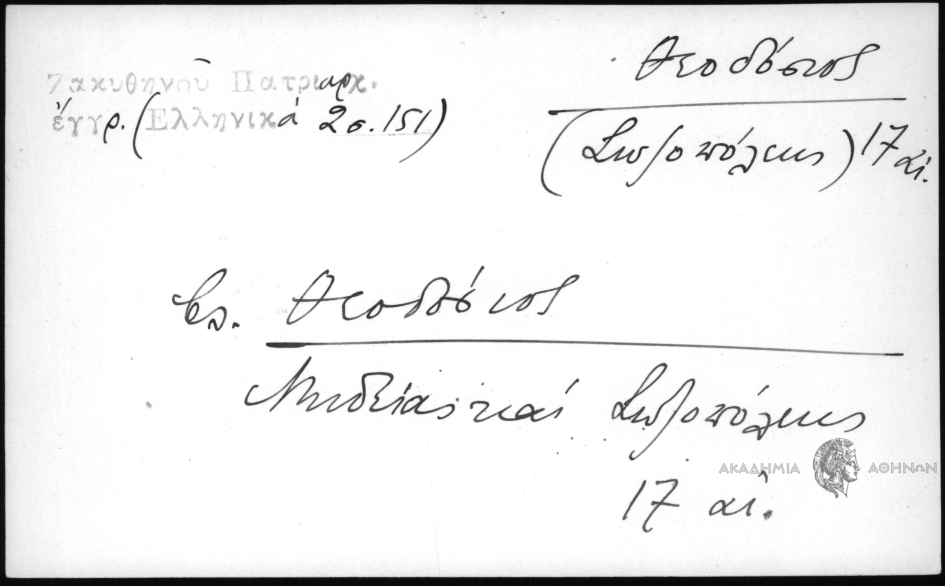 Ζακυθηνοῦ Πατριαρχ.
ἔγγρ. (Ἑλληνικά 2σ.151)
Θεοδόσιος
(Σωζοπόλεως) 17 αἰ.
βλ. Θεοδόσιος
Μηδείας καί Σωζοπόλεως
17 αἰ.
ΑΚΑΔΗΜΙΑ ΑΘΗΝΩΝ